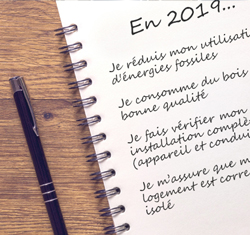 En 2019...
Je réduis mon utilisati
d'énergies fossiles
Je consomme du bois
bonne qualité
Je fais vérifier mon
installation complèt
(appareil et condui
Je m'assure que m
logement est corre
isolé